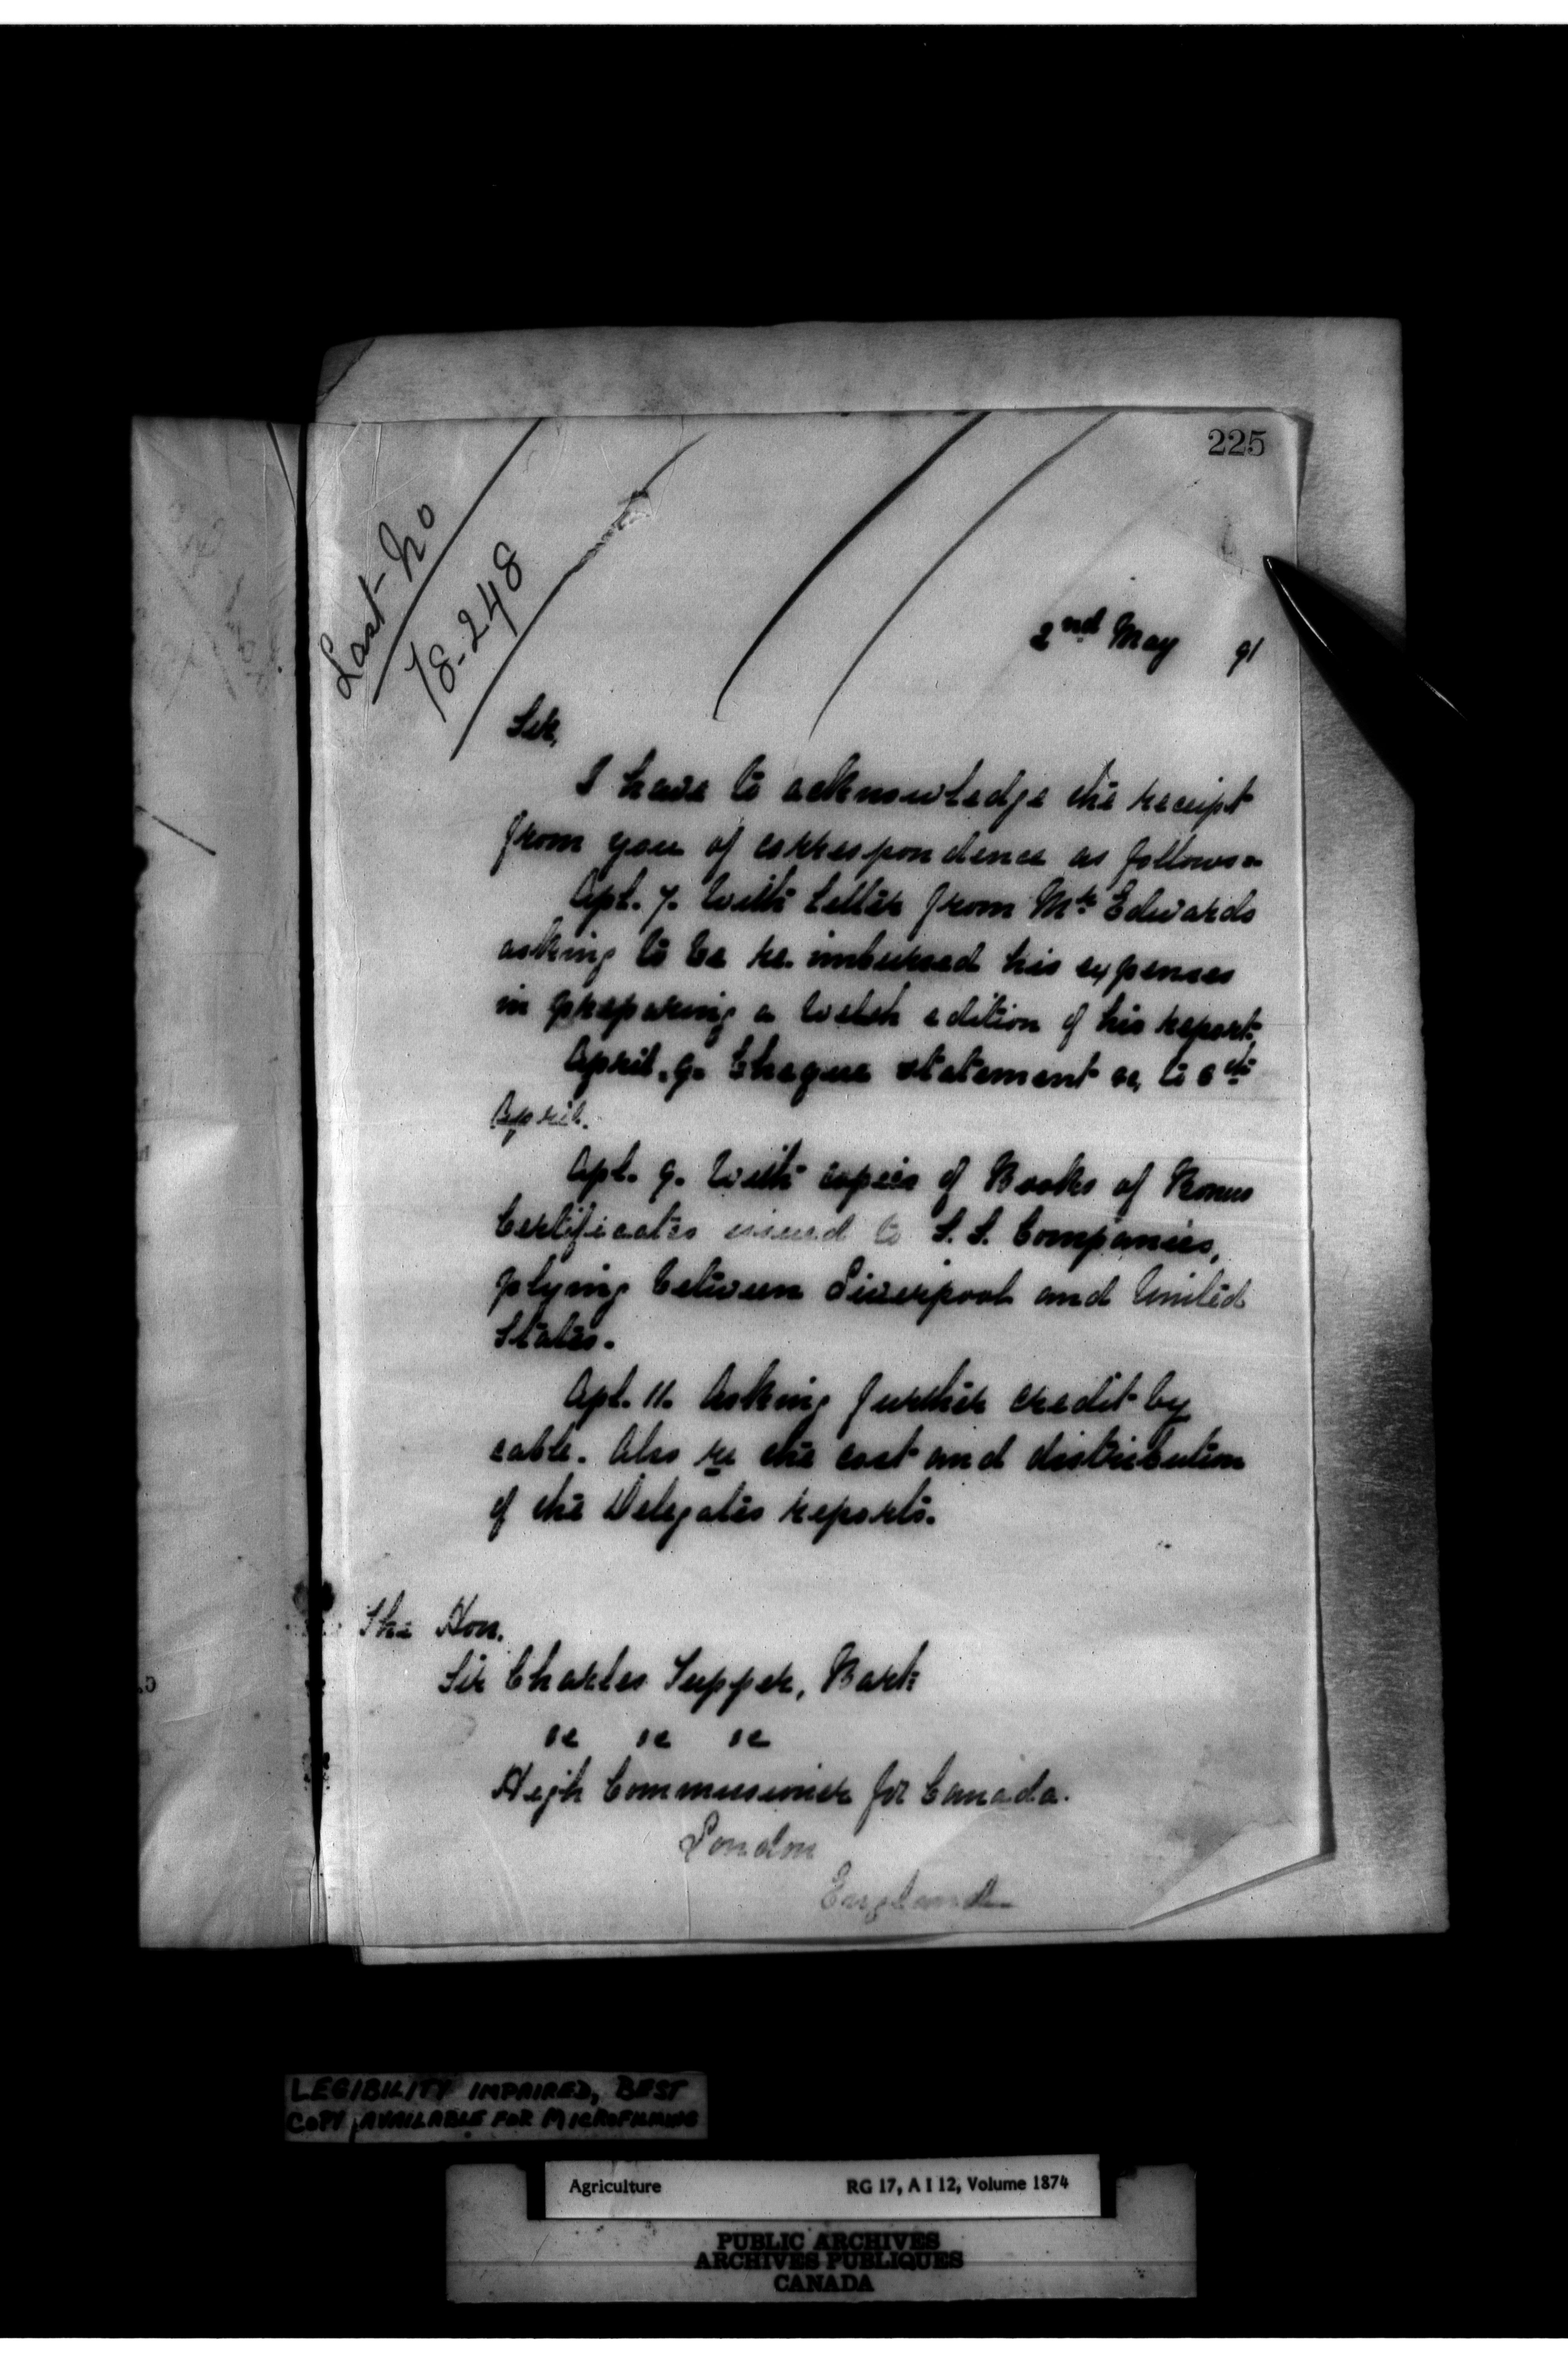 225
Last No
78.248
2nd May 91
Sir,
I have to acknowledge the receipt
from you of correspondence as follows:-
Apl. 7. With letter from Mr. Edwards
asking to be re-imbursed his expenses
in preparing a Welsh edition of his report.
April. 9. Cheque statement &c, to 8th
April.
Apl. 9. With copies of Books of Bonus
Certificates issued to S. S. Companies,
plying between Liverpool and United
States.
Apl. 11. Asking further credit by
cable. Also re the cost and distribution
of the Delegates reports.
The Hon.
Sir Charles Tupper, Bart
&c &c &c
High Commissioner for Canada.
London
England
LEGIBILITY IMPAIRED, BEST
COPY AVAILABLE FOR MICROFILMING
Agriculture RG 17, A I 12, Volume 1874
PUBLIC ARCHIVES
ARCHIVES PUBLIQUES
CANADA